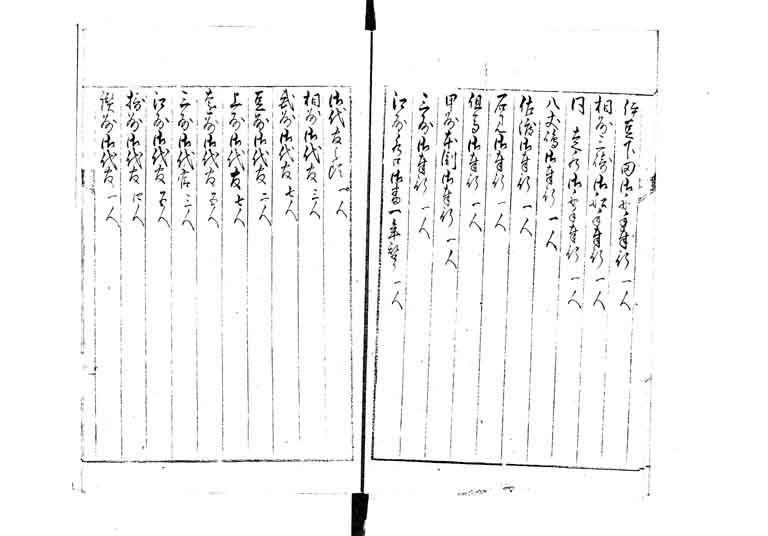 伊豆下田御船奉行 一人
相州三崎御船奉行 一人
同 走水御船奉行 一人
八丈嶋御奉行 一人
佐渡御奉行 一人
石見御奉行 一人
但馬御奉行 一人
甲州本判御奉行 一人
三州御奉行 一人
江州水口御番一年替 一人
御代官頭 一人
相州御代官 三人
武州御代官 七人
豆州御代官 二人
上州御代官 七人
遠州御代官 五人
三州御代官 三人
江州御代官 五人
摂州御代官 四人
讃州御代官 一人